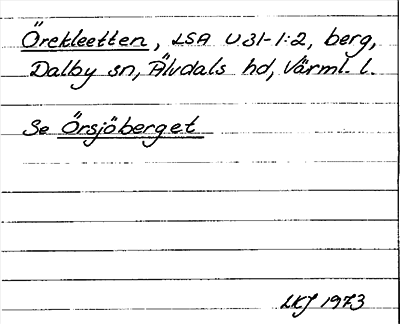 Örekleetten, LSA U31-1:2, berg,
Dalby sn, Älvdals hd, Värml. l.
Se Örsjöberget
LKJ 1973